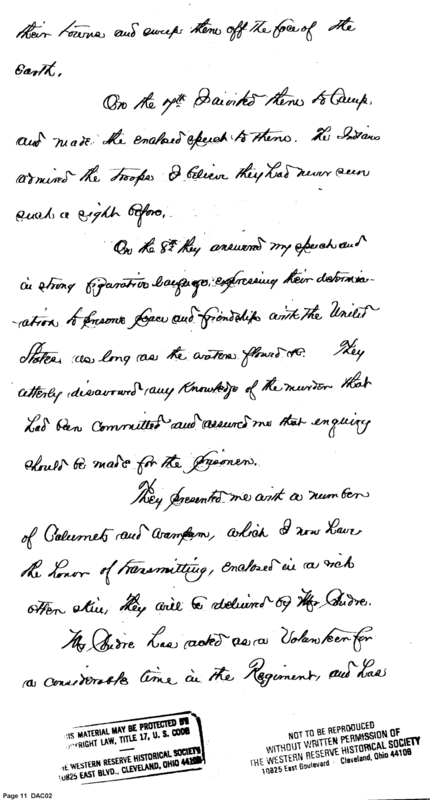 their towns and sweep them off the face of the
Earth.
On the 7th I invited them to Camp,
and made the enclosed speech to them. The Indians
admired the troops I believe they had never seen
such a sight before.
On the 8th they answered my speech and
in strong figurative language, expressing their determin-
-ation to preserve peace and friendship with the United
States, as long as the waters flowed &c. They
utterly disavowed any Knowledge of the murder that
had been committed and assured me that enquiry
should be made for the prisoner.
They presented me with a number
of Calumets and wampum, which I now have
the honor of transmitting, enclosed in a rich
otter skin, they will be delivered by Mr.
Mr. has acted as a Volunteer for
a considerable time in the Regiment, and has
IS MATERIAL MAY BE PROTECTED BY
YRIGHT LAW, TITLE 17, U. S. CODE
HE WESTERN RESERVE HISTORICAL SOCIETY
10825 EAST BLVD., CLEVELAND, OHIO 44106
NOT TO BE REPRODUCED
WITHOUT WRITTEN PERMISSION OF
THE WESTERN RESERVE HISTORICAL SOCIETY
10825 East Boulevard Cleveland, Ohio 44106
Page 11 DAC02